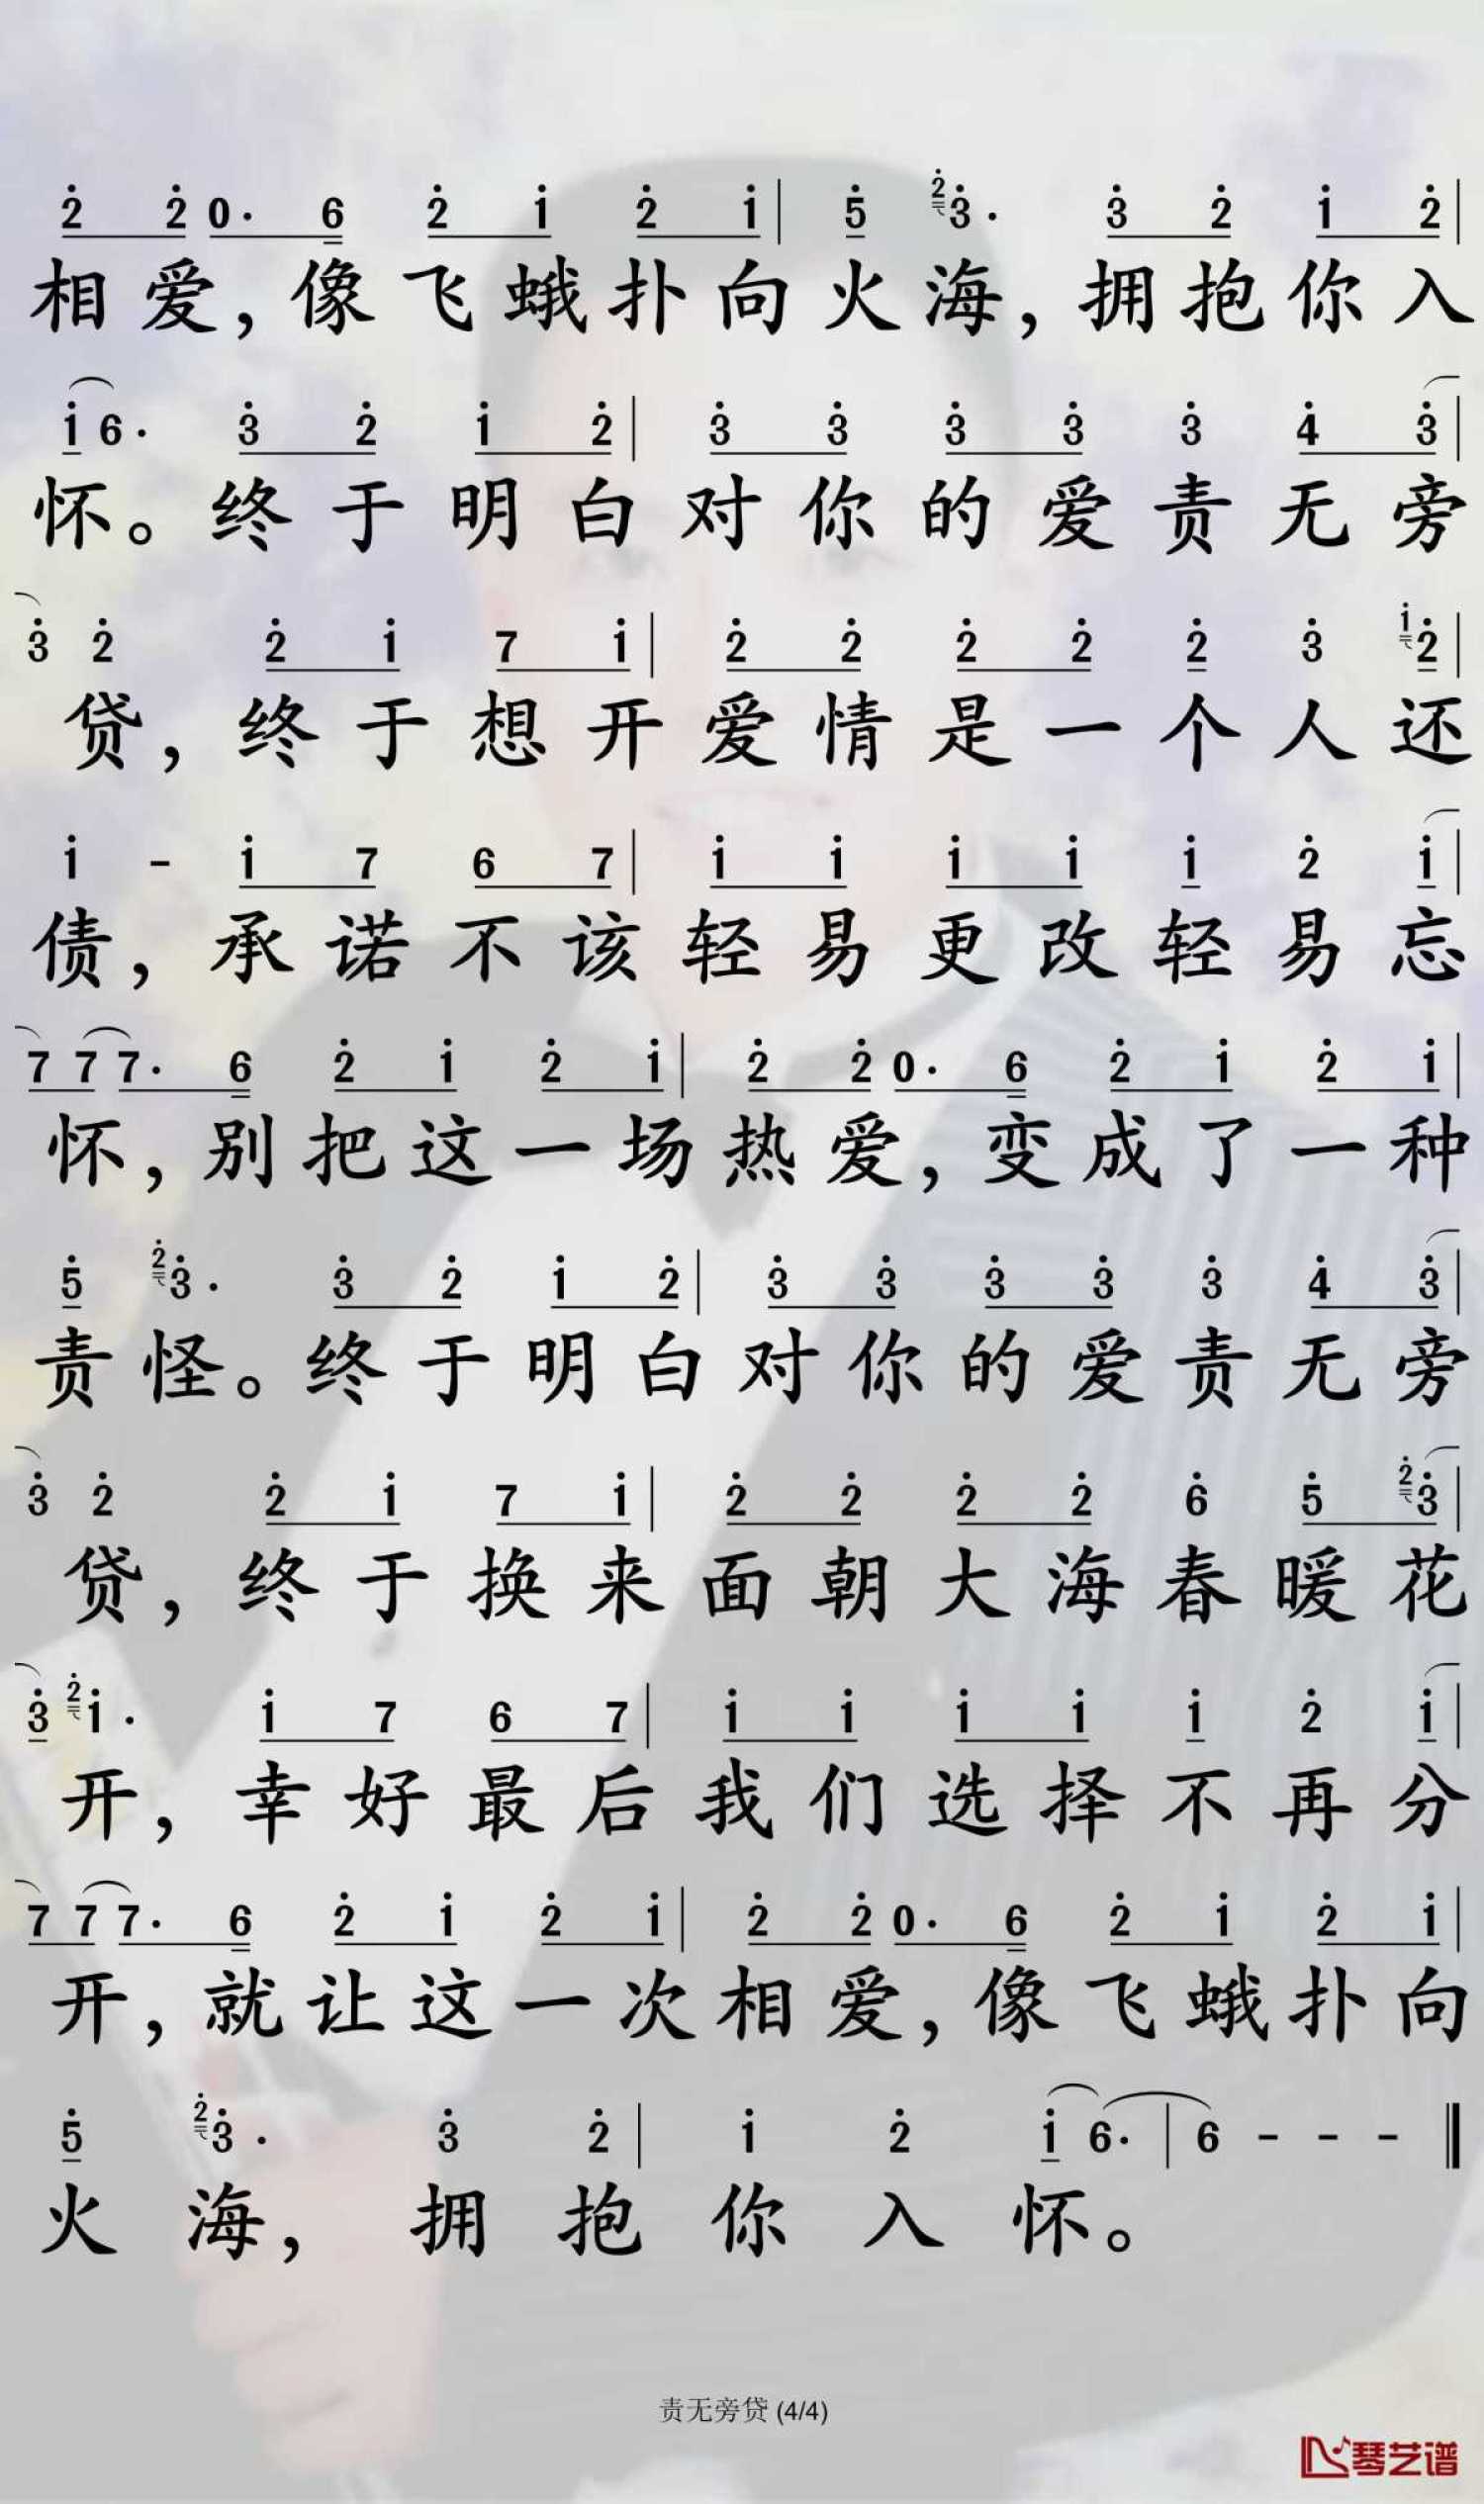 2̇ 2̇ 0· 6 2̇ 1̇ 2̇ 1̇ | 5̇ 2̇3̇· 3̇ 2̇ 1̇ 2̇ |
相爱，像飞蛾扑向火海，拥抱你入
1̇ 6· 3̇ 2̇ 1̇ 2̇ | 3̇ 3̇ 3̇ 3̇ 3̇ 4̇ 3̇ |
怀。终于明白对你的爱责无旁
3̇ 2̇ 2̇ 1̇ 7 1̇ | 2̇ 2̇ 2̇ 2̇ 2̇ 3̇ 1̇2̇ |
贷，终于想开爱情是一个人还
1̇ - 1̇ 7 6 7 | 1̇ 1̇ 1̇ 1̇ 1̇ 2̇ 1̇ |
债，承诺不该轻易更改轻易忘
7 7 7· 6 2̇ 1̇ 2̇ 1̇ | 2̇ 2̇ 0· 6 2̇ 1̇ 2̇ 1̇ |
怀，别把这一场热爱，变成了一种
5̇ 2̇3̇· 3̇ 2̇ 1̇ 2̇ | 3̇ 3̇ 3̇ 3̇ 3̇ 4̇ 3̇ |
责怪。终于明白对你的爱责无旁
3̇ 2̇ 2̇ 1̇ 7 1̇ | 2̇ 2̇ 2̇ 2̇ 6̇ 5̇ 2̇3̇ |
贷，终于换来面朝大海春暖花
3̇ 2̇1̇· 1̇ 7 6 7 | 1̇ 1̇ 1̇ 1̇ 1̇ 2̇ 1̇ |
开，幸好最后我们选择不再分
7 7 7· 6 2̇ 1̇ 2̇ 1̇ | 2̇ 2̇ 0· 6 2̇ 1̇ 2̇ 1̇ |
开，就让这一次相爱，像飞蛾扑向
5̇ 2̇3̇· 3̇ 2̇ | 1̇ 2̇ 1̇ 6· | 6 - - - ‖
火海，拥抱你入怀。
责无旁贷 (4/4)
琴艺谱